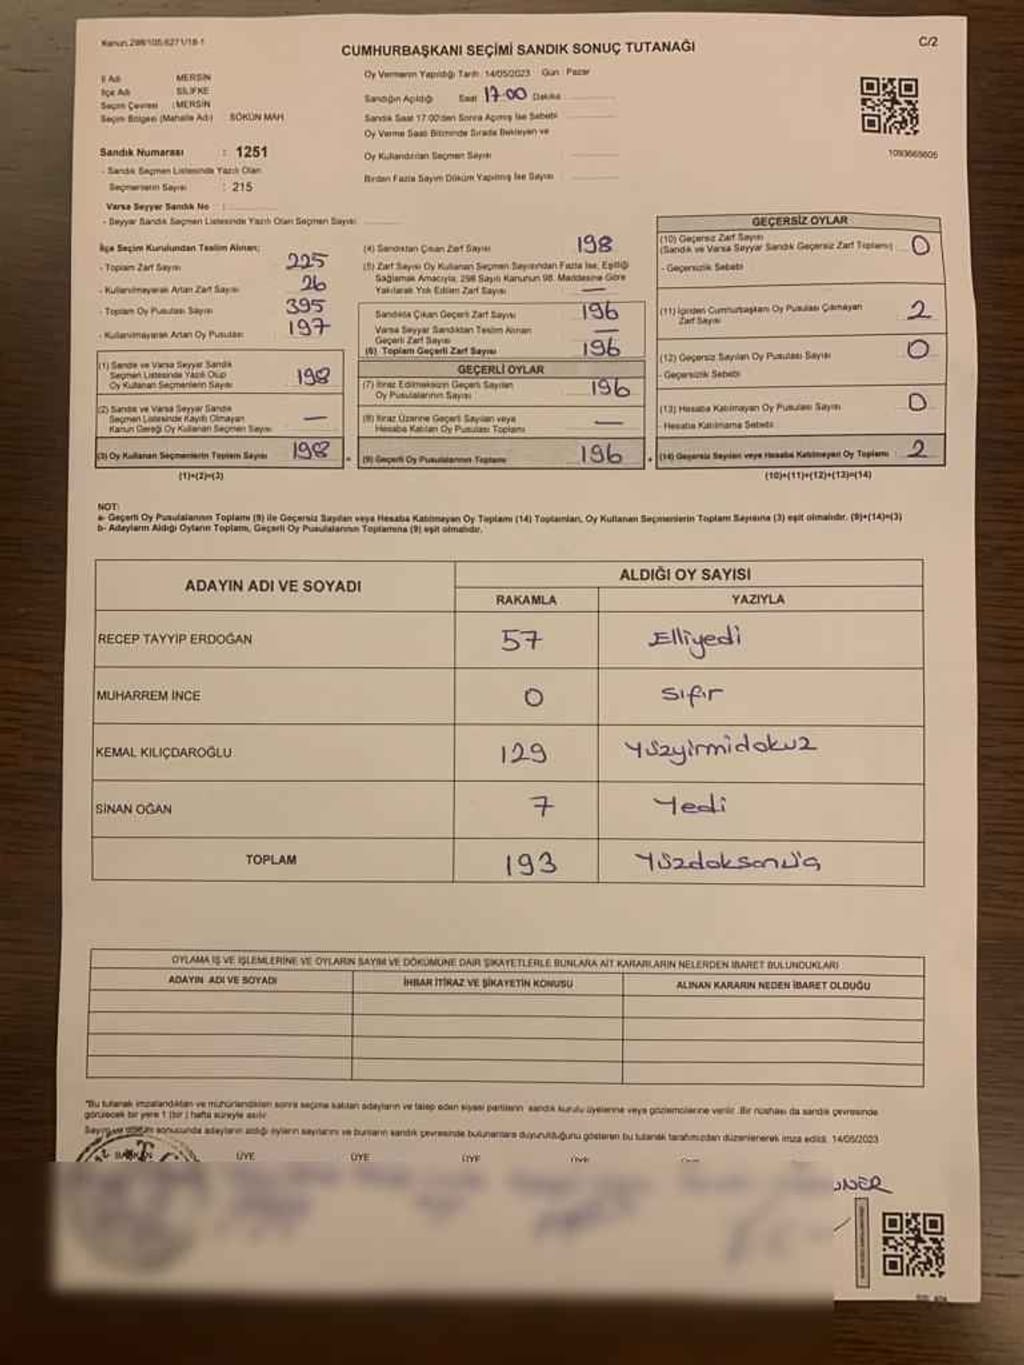 Kanun.298/105.6271/18-1
C/2
CUMHURBAŞKANI SEÇİMİ SANDIK SONUÇ TUTANAĞI
İl Adı MERSİN
İlçe Adı SİLİFKE
Seçim Çevresi : MERSİN
Seçim Bölgesi (Mahalle Adı) SÖKÜN MAH
Sandık Numarası : 1251
- Sandık Seçmen Listesinde Yazılı Olan
Seçmenlerin Sayısı : 215
Varsa Seyyar Sandık No :
- Seyyar Sandık Seçmen Listesinde Yazılı Olan Seçmen Sayısı
Oy Vermenin Yapıldığı Tarih: 14/05/2023 Gün : Pazar
Sandığın Açıldığı Saat 17:00 Dakika
Sandık Saat 17.00'den Sonra Açılmış İse Sebebi
Oy Verme Saati Bitiminde Sırada Bekleyen ve
Oy Kullandırılan Seçmen Sayısı
Birden Fazla Sayım Döküm Yapılmış İse Sayısı
1093665605
İlçe Seçim Kurulundan Teslim Alınan;
- Toplam Zarf Sayısı 225
- Kullanılmayarak Artan Zarf Sayısı 26
- Toplam Oy Pusulası Sayısı 395
- Kullanılmayarak Artan Oy Pusulası 197
(1) Sandık ve Varsa Seyyar Sandık
Seçmen Listesinde Yazılı Olup
Oy Kullanan Seçmenlerin Sayısı 198
(2) Sandık ve Varsa Seyyar Sandık
Seçmen Listesinde Kayıtlı Olmayan
Kanun Gereği Oy Kullanan Seçmen Sayısı —
(3) Oy Kullanan Seçmenlerin Toplam Sayısı 198
(1)+(2)=(3)
(4) Sandıktan Çıkan Zarf Sayısı 198
(5) Zarf Sayısı Oy Kullanan Seçmen Sayısından Fazla İse, Eşitliği
Sağlamak Amacıyla, 298 Sayılı Kanunun 98. Maddesine Göre
Yakılarak Yok Edilen Zarf Sayısı —
Sandıkta Çıkan Geçerli Zarf Sayısı 196
Varsa Seyyar Sandıktan Teslim Alınan
Geçerli Zarf Sayısı —
(6) Toplam Geçerli Zarf Sayısı 196
GEÇERLİ OYLAR
(7) İtiraz Edilmeksizin Geçerli Sayılan
Oy Pusulalarının Sayısı 196
(8) İtiraz Üzerine Geçerli Sayılan veya
Hesaba Katılan Oy Pusulası Toplamı —
(9) Geçerli Oy Pusulalarının Toplamı 196
GEÇERSİZ OYLAR
(10) Geçersiz Zarf Sayısı
(Sandık ve Varsa Seyyar Sandık Geçersiz Zarf Toplamı) 0
- Geçersizlik Sebebi
(11) İçinden Cumhurbaşkanı Oy Pusulası Çıkmayan
Zarf Sayısı 2
(12) Geçersiz Sayılan Oy Pusulası Sayısı 0
- Geçersizlik Sebebi
(13) Hesaba Katılmayan Oy Pusulası Sayısı 0
- Hesaba Katılmama Sebebi
(14) Geçersiz Sayılan veya Hesaba Katılmayan Oy Toplamı 2
(10)+(11)+(12)+(13)=(14)
NOT:
a- Geçerli Oy Pusulalarının Toplamı (9) ile Geçersiz Sayılan veya Hesaba Katılmayan Oy Toplamı (14) Toplamları, Oy Kullanan Seçmenlerin Toplam Sayısına (3) eşit olmalıdır. (9)+(14)=(3)
b- Adayların Aldığı Oyların Toplamı, Geçerli Oy Pusulalarının Toplamına (9) eşit olmalıdır.
ADAYIN ADI VE SOYADI
ALDIĞI OY SAYISI
RAKAMLA YAZIYLA
RECEP TAYYİP ERDOĞAN 57 Elliyedi
MUHARREM İNCE 0 sıfır
KEMAL KILIÇDAROĞLU 129 Yüzyirmidokuz
SİNAN OĞAN 7 Yedi
TOPLAM 193 Yüzdoksanüç
OYLAMA İŞ VE İŞLEMLERİNE VE OYLARIN SAYIM VE DÖKÜMÜNE DAİR ŞİKAYETLERLE BUNLARA AİT KARARLARIN NELERDEN İBARET BULUNDUKLARI
ADAYIN ADI VE SOYADI İHBAR İTİRAZ VE ŞİKAYETİN KONUSU ALINAN KARARIN NEDEN İBARET OLDUĞU
"Bu tutanak imzalandıktan ve mühürlendikten sonra seçime katılan adayların ve talep eden siyasi partilerin sandık kurulu üyelerine veya gözlemcilerine verilir. Bir nüshası da sandık çevresinde
görülecek bir yere 1 (bir) hafta süreyle asılır.
Sayım ve döküm sonucunda adayların aldığı oyların sayılarını ve bunların sandık çevresinde bulunanlara duyurulduğunu gösteren bu tutanak tarafımızdan düzenlenerek imza edildi. 14/05/2023
BAŞKAN ÜYE ÜYE ÜYE